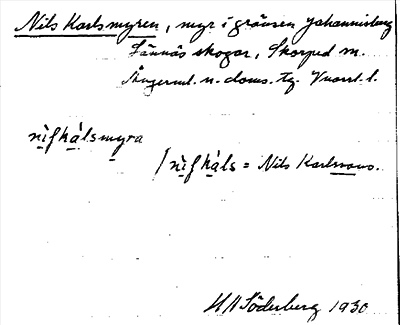 Nils Karlsmyren, myr i gränsen Johannisberg
Lännäs skogar, Skorped sn.
Ångerml. n. doms. tg. Vnorrl. l.
nìfkálsmyra
/ nìfkàls = Nils Karlssons.
H Söderberg 1930